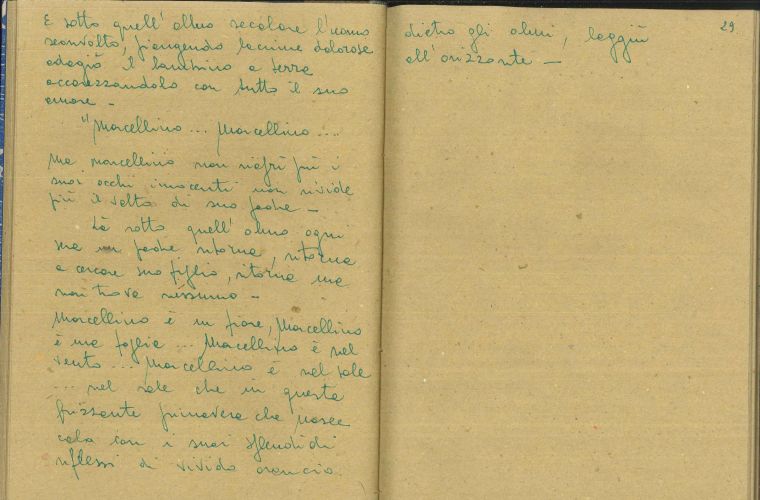 E sotto quell'olmo secolare l'uomo
sconvolto, piangendo lacrime dolorose
adagiò il bambino a terra
accarezzandolo con tutto il suo
amore -
"Marcellino ... Marcellino ....
Ma Marcellino non riaprì più i
suoi occhi innocenti non rivide
più il volto di suo padre -
Là sotto quell'olmo ogni
sera un padre ritorna, ritorna
a cercare suo figlio, ritorna ma
non trova nessuno -
Marcellino è un fiore, Marcellino
è una foglia ... Marcellino è nel
vento ... Marcellino è nel sole
... nel sole che in questa
frizzante primavera che nasce
cala con i suoi splendidi
riflessi di vivido arancio
29.
dietro gli olmi, laggiù
all'orizzonte -